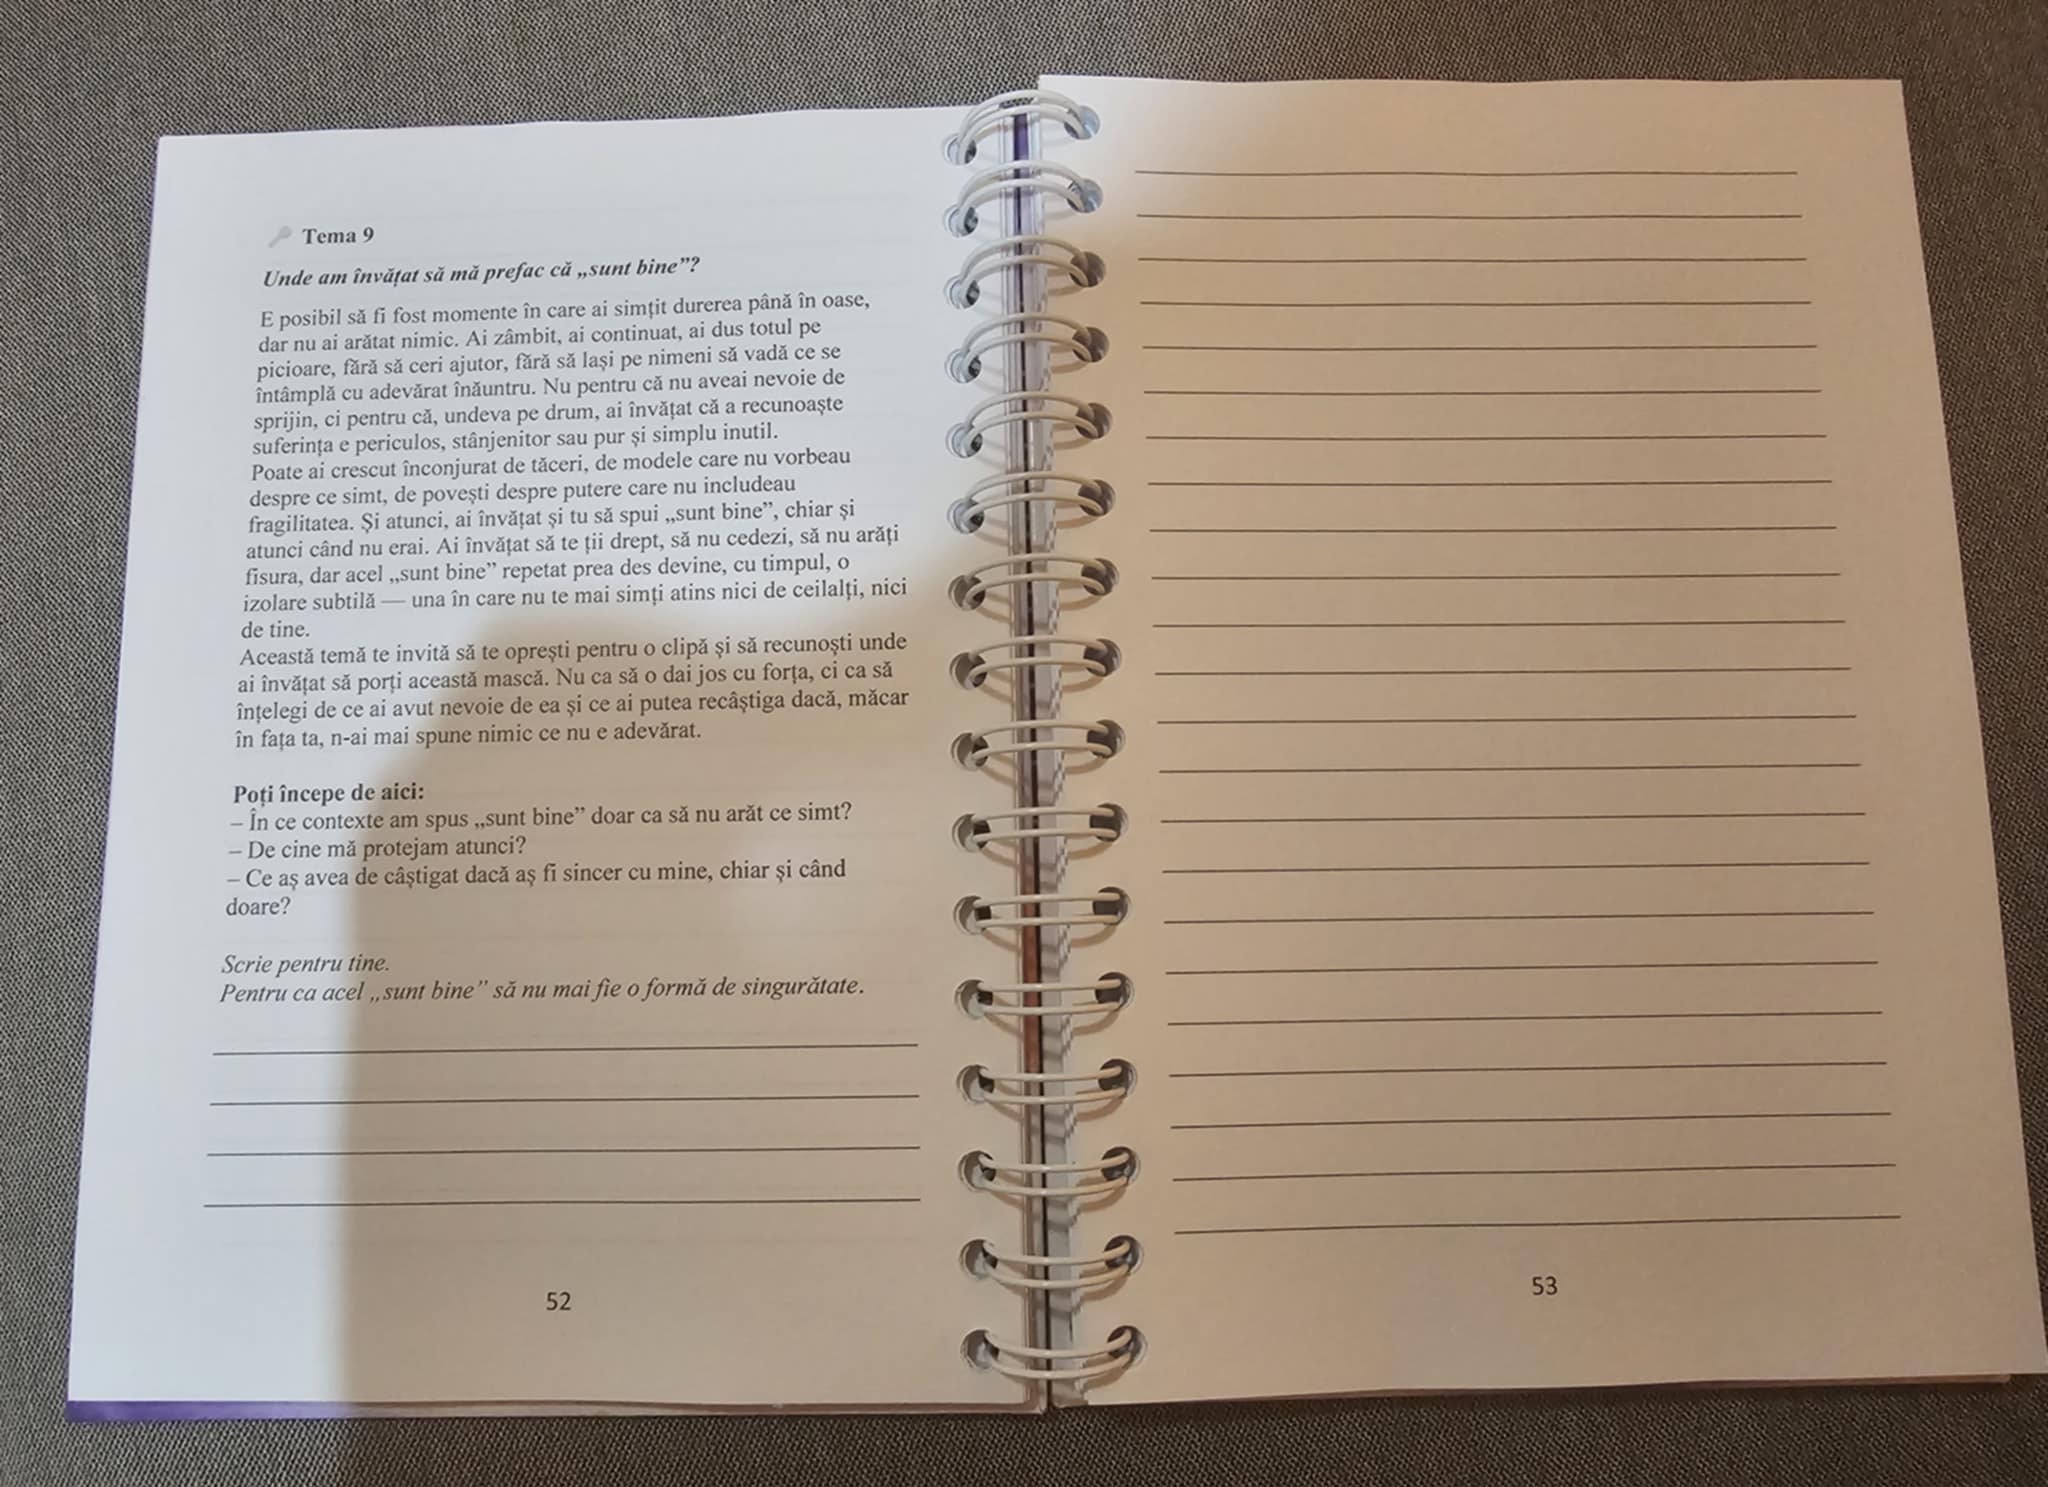 Tema 9
Unde am învățat să mă prefac că „sunt bine”?
E posibil să fi fost momente în care ai simțit durerea până în oase,
dar nu ai arătat nimic. Ai zâmbit, ai continuat, ai dus totul pe
picioare, fără să ceri ajutor, fără să lași pe nimeni să vadă ce se
întâmplă cu adevărat înăuntru. Nu pentru că nu aveai nevoie de
sprijin, ci pentru că, undeva pe drum, ai învățat că a recunoaște
suferința e periculos, stânjenitor sau pur și simplu inutil.
Poate ai crescut înconjurat de tăceri, de modele care nu vorbeau
despre ce simt, de povești despre putere care nu includeau
fragilitatea. Și atunci, ai învățat și tu să spui „sunt bine”, chiar și
atunci când nu erai. Ai învățat să te ții drept, să nu cedezi, să nu arăți
fisura, dar acel „sunt bine” repetat prea des devine, cu timpul, o
izolare subtilă — una în care nu te mai simți atins nici de ceilalți, nici
de tine.
Această temă te invită să te oprești pentru o clipă și să recunoști unde
ai învățat să porți această mască. Nu ca să o dai jos cu forța, ci ca să
înțelegi de ce ai avut nevoie de ea și ce ai putea recâștiga dacă, măcar
în fața ta, n-ai mai spune nimic ce nu e adevărat.
Poți începe de aici:
– În ce contexte am spus „sunt bine” doar ca să nu arăt ce simt?
– De cine mă protejam atunci?
– Ce aș avea de câștigat dacă aș fi sincer cu mine, chiar și când
doare?
Scrie pentru tine.
Pentru ca acel „sunt bine” să nu mai fie o formă de singurătate.
52
53